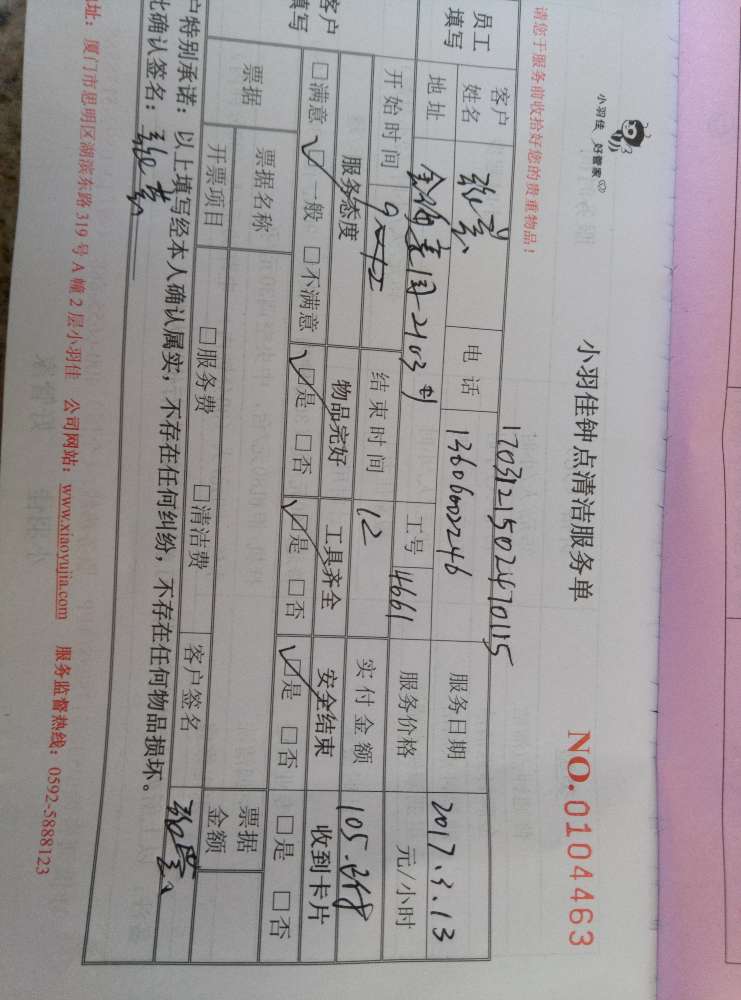 小羽佳 好管家
小羽佳钟点清洁服务单
NO.0104463
请您于服务前收拾好您的贵重物品！
17031215024701115
员工填写
客户姓名 电话 13606002246 服务日期 2017.3.13
地址 2103 工号 4661 服务价格 元/小时
开始时间 结束时间 12 实付金额 105
客户填写
服务态度 物品完好 工具齐全 安全结束 收到卡片
□满意 □一般 □不满意 □是 □否 □是 □否 □是 □否 □是 □否
票据 票据名称 票据金额
开票项目 □服务费 □清洁费 客户签名
户特别承诺：以上填写经本人确认属实，不存在任何纠纷，不存在任何物品损坏。
此确认签名：
址：厦门市思明区湖滨东路319号A幢2层小羽佳 公司网站：www.xiaoyujia.com 服务监督热线：0592-5888123